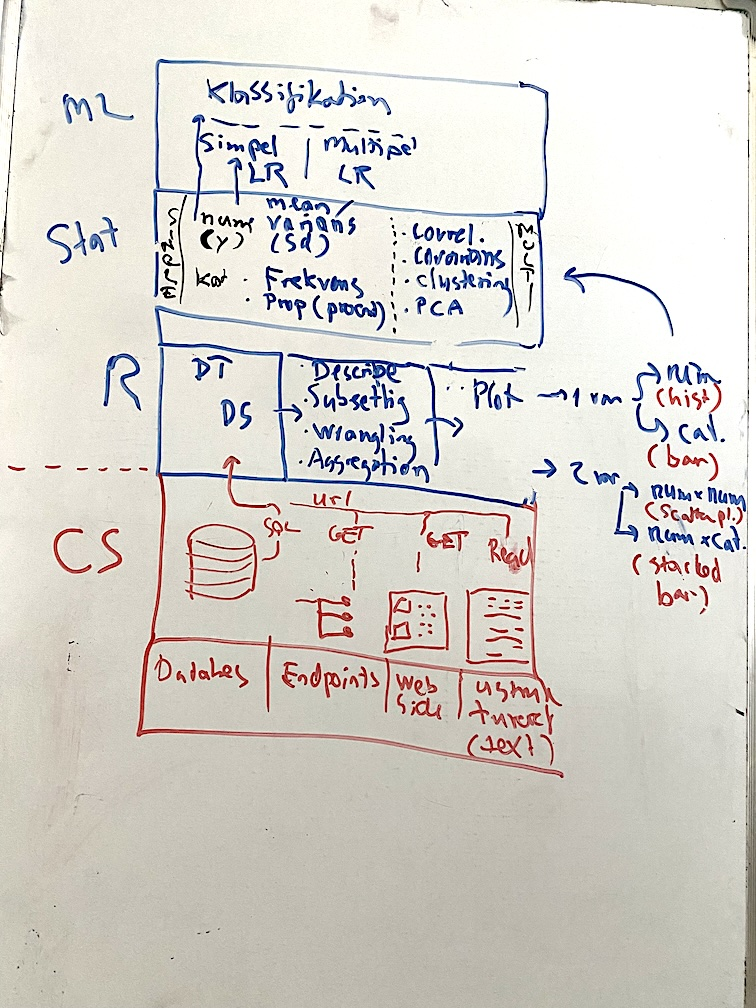 ML
Klassifikation
Simpel
LR
Multipel
LR
Stat
SIMPEL
num
(y)
mean/
varians
(sd)
Kat
· Frekvens
· Prop (procent)
· Correl.
· Covarians
· Clustering
· PCA
MULTI
R
DT
DS
· Describe
· Subsettig
· Wrangling
· Aggregation
Plot
1 var
num
(hist)
cat.
(bar)
2 var
num x num
(scatter pl.)
num x cat.
(stacked
bar)
CS
SQL
url
GET
GET
Read
Databes
Endpoints
Web
side
ustruk
tureret
(text)